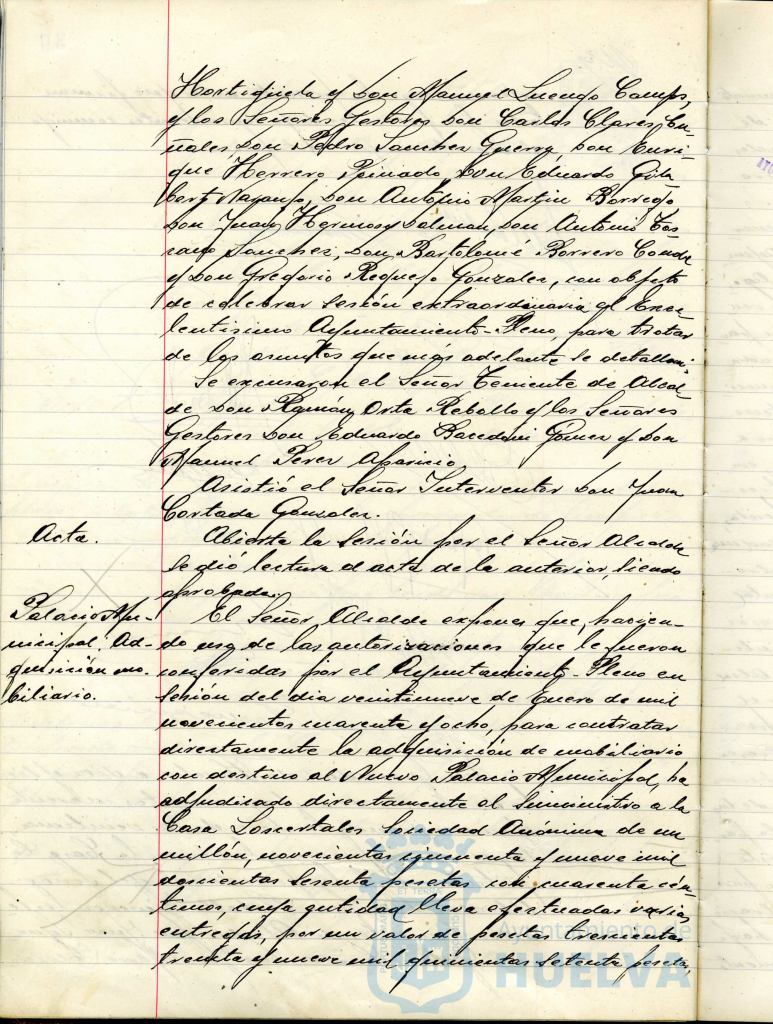 Hortigüela y Don Manuel Luengo Camps,
y los Señores Gestores Don Carlos Clares Cu-
ñales Don Pedro Sanchez Guerra, Don Enri-
que Herrero Peinado, Don Eduardo Gila
bert Naranjo, Don Antonio Martin Borrego
Don Juan Hermoso Dolman, Don Antonio Tos
cano Sanchez, Don Bartolomé Borrero Conde
y Don Gregorio Requejo Gonzalez, con objeto
de celebrar sesión extraordinaria el Exce-
lentisimo Ayuntamiento-Pleno, para tratar
de los asuntos que más adelante se detallan.
Se excusaron el Señor Teniente de Alcal-
de Don Ramón Orta Rebollo y los Señores
Gestores Don Eduardo Bacedoni Gómez y Don
Manuel Perez Aparicio
Asistió el Señor Interventor Don Juan
Cortada Gonzalez.
Acta.
Abierta la Sesión por el Señor Alcalde
se dió lectura al acta de la anterior, siendo
aprobada.
Palacio Mu-
nicipal. Ad-
quisición mo-
biliario.
El Señor Alcalde expones que, hacien-
do uso de las autorizaciones que le fueron
conferidas por el Ayuntamiento-Pleno en
sesión del dia veintinueve de Enero de mil
novecientos cuarenta y ocho, para contratar
directamente la adquisición de mobiliario
con destino al Nuevo Palacio Municipal, ha
adjudicado directamente el suministro a la
Casa Loscertales Sociedad Anónima de un
millón, novecientas cincuenta y nueve mil
doscientas sesenta pesetas con cuarenta cén-
timos, cuya entidad lleva efectuadas varias
entregas, por un valor de pesetas trescientas
treinta y nueve mil quinientas setenta pesetas,
Ayuntamiento de
HUELVA